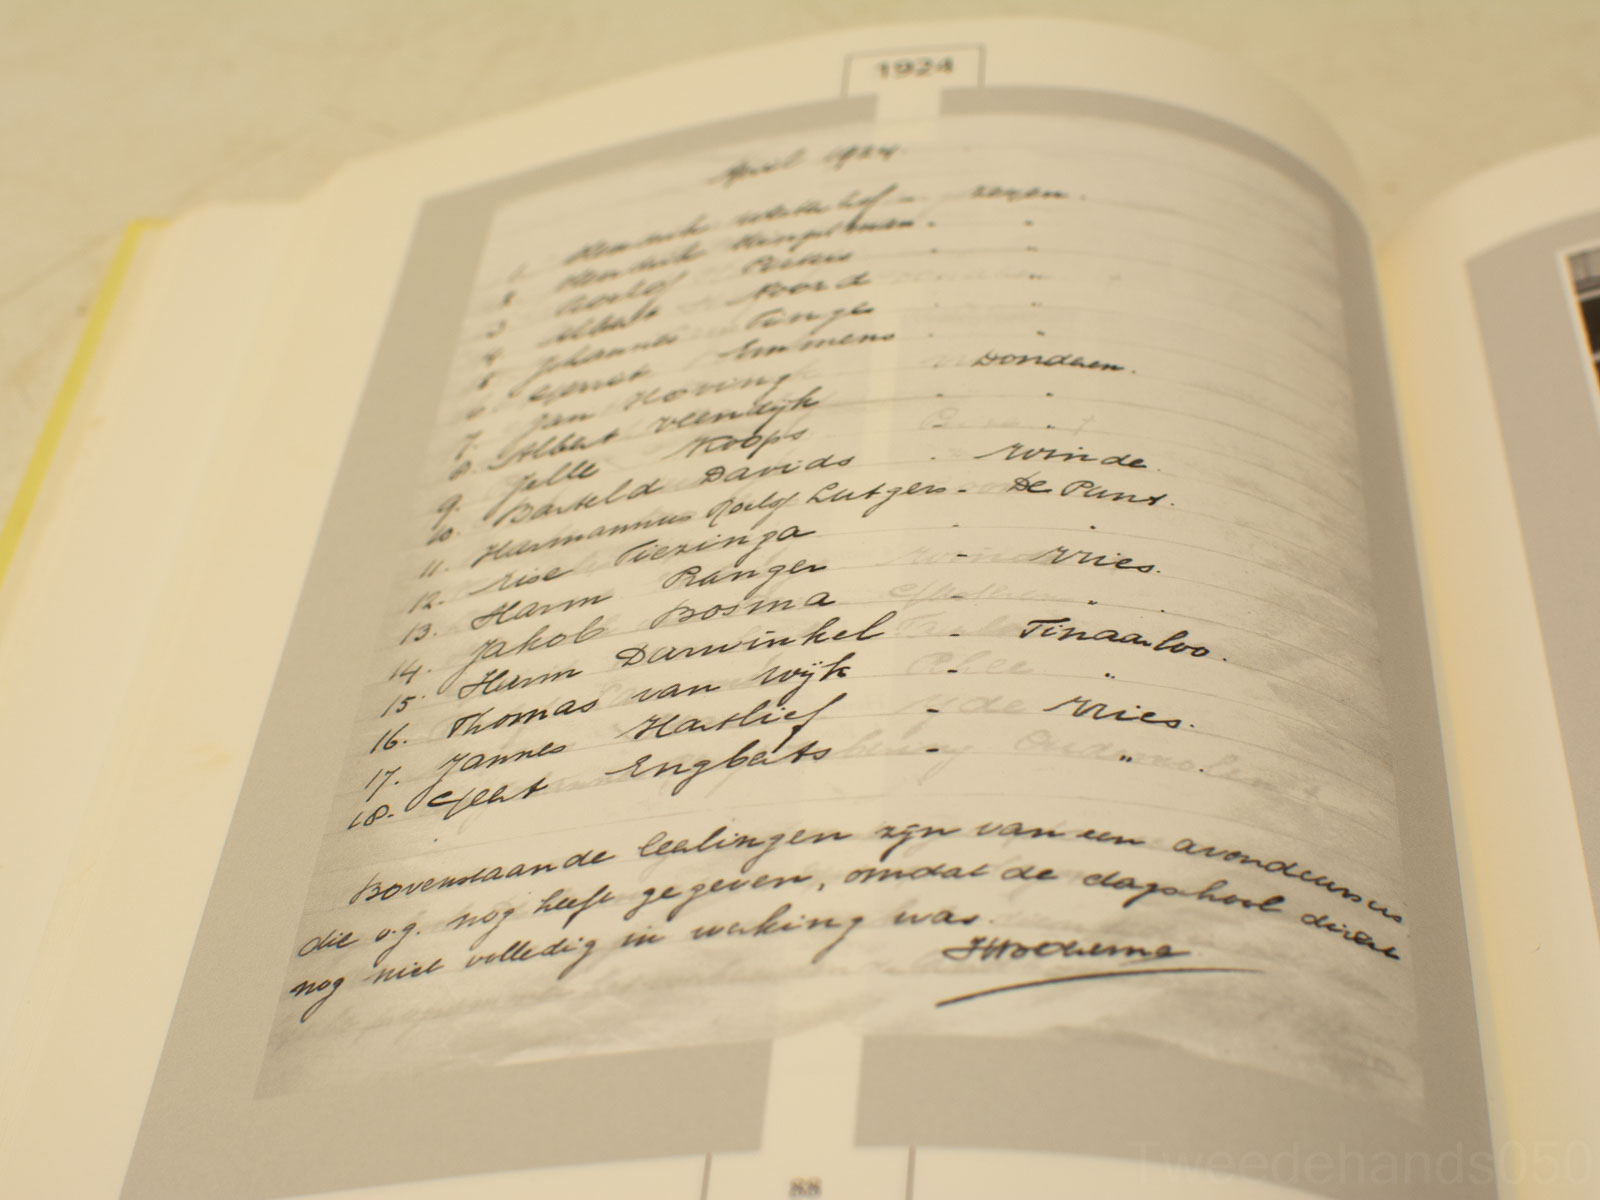 1924
April 1924.
1. Hendrik - zeyen.
2. Hendrik Hingstman - "
3. Roelof Pieters - "
4. Albert Noord - "
5. Johannes - "
6. Gerret Emmens - "
7. Jan Hoving - Donderen.
8. Albert Veendijk - "
9. Jelle Koops "
10. Barteld Davids - Winde.
11. Harmannus Roelof Lutgers - De Punt.
12. Tiezinga - "
13. Harm Ranger - Vries.
14. Jakob Bosma - "
15. Harm Darwinkel - Tinaarloo.
16. Thomas van Wijk - "
17. Jannes Hartlief - Vries.
18. Geert Engberts - "
Bovenstaande leerlingen zijn van een avondcursus
die v.g. nog heeft gegeven, omdat de dagschool direct
nog niet volledig in werking was.
88
Tweedehands050